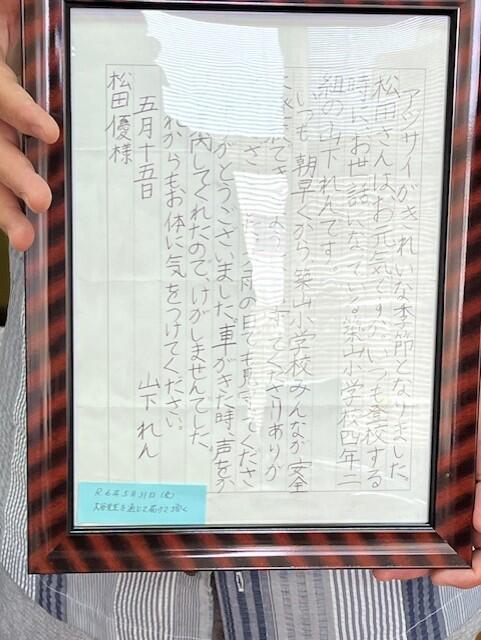 アジサイがきれいな季節となりました。
松田さんはお元気ですか。いつも登校する
時に、お世話になっている築山小学校四年二
組の山下れんです。
いつも朝早くから、築山小学校みんなが安全
てくださりありが
雨の日でも見守ってくださ
がとうございました。車がきた時、声をか
内してくれたので、けがしませんでした。
れからもお体に気をつけてください。
山下れん
五月十五日
松田優様
R6年5月31日(金)
大谷先生を通じて届けて頂く